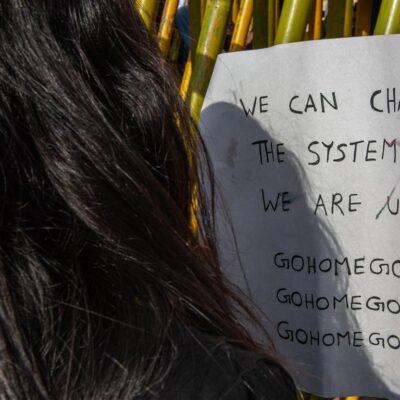 WE CAN CHA
THE SYSTEM
WE ARE U
GOHOMEGO
GOHOMEGO
GOHOMEGO